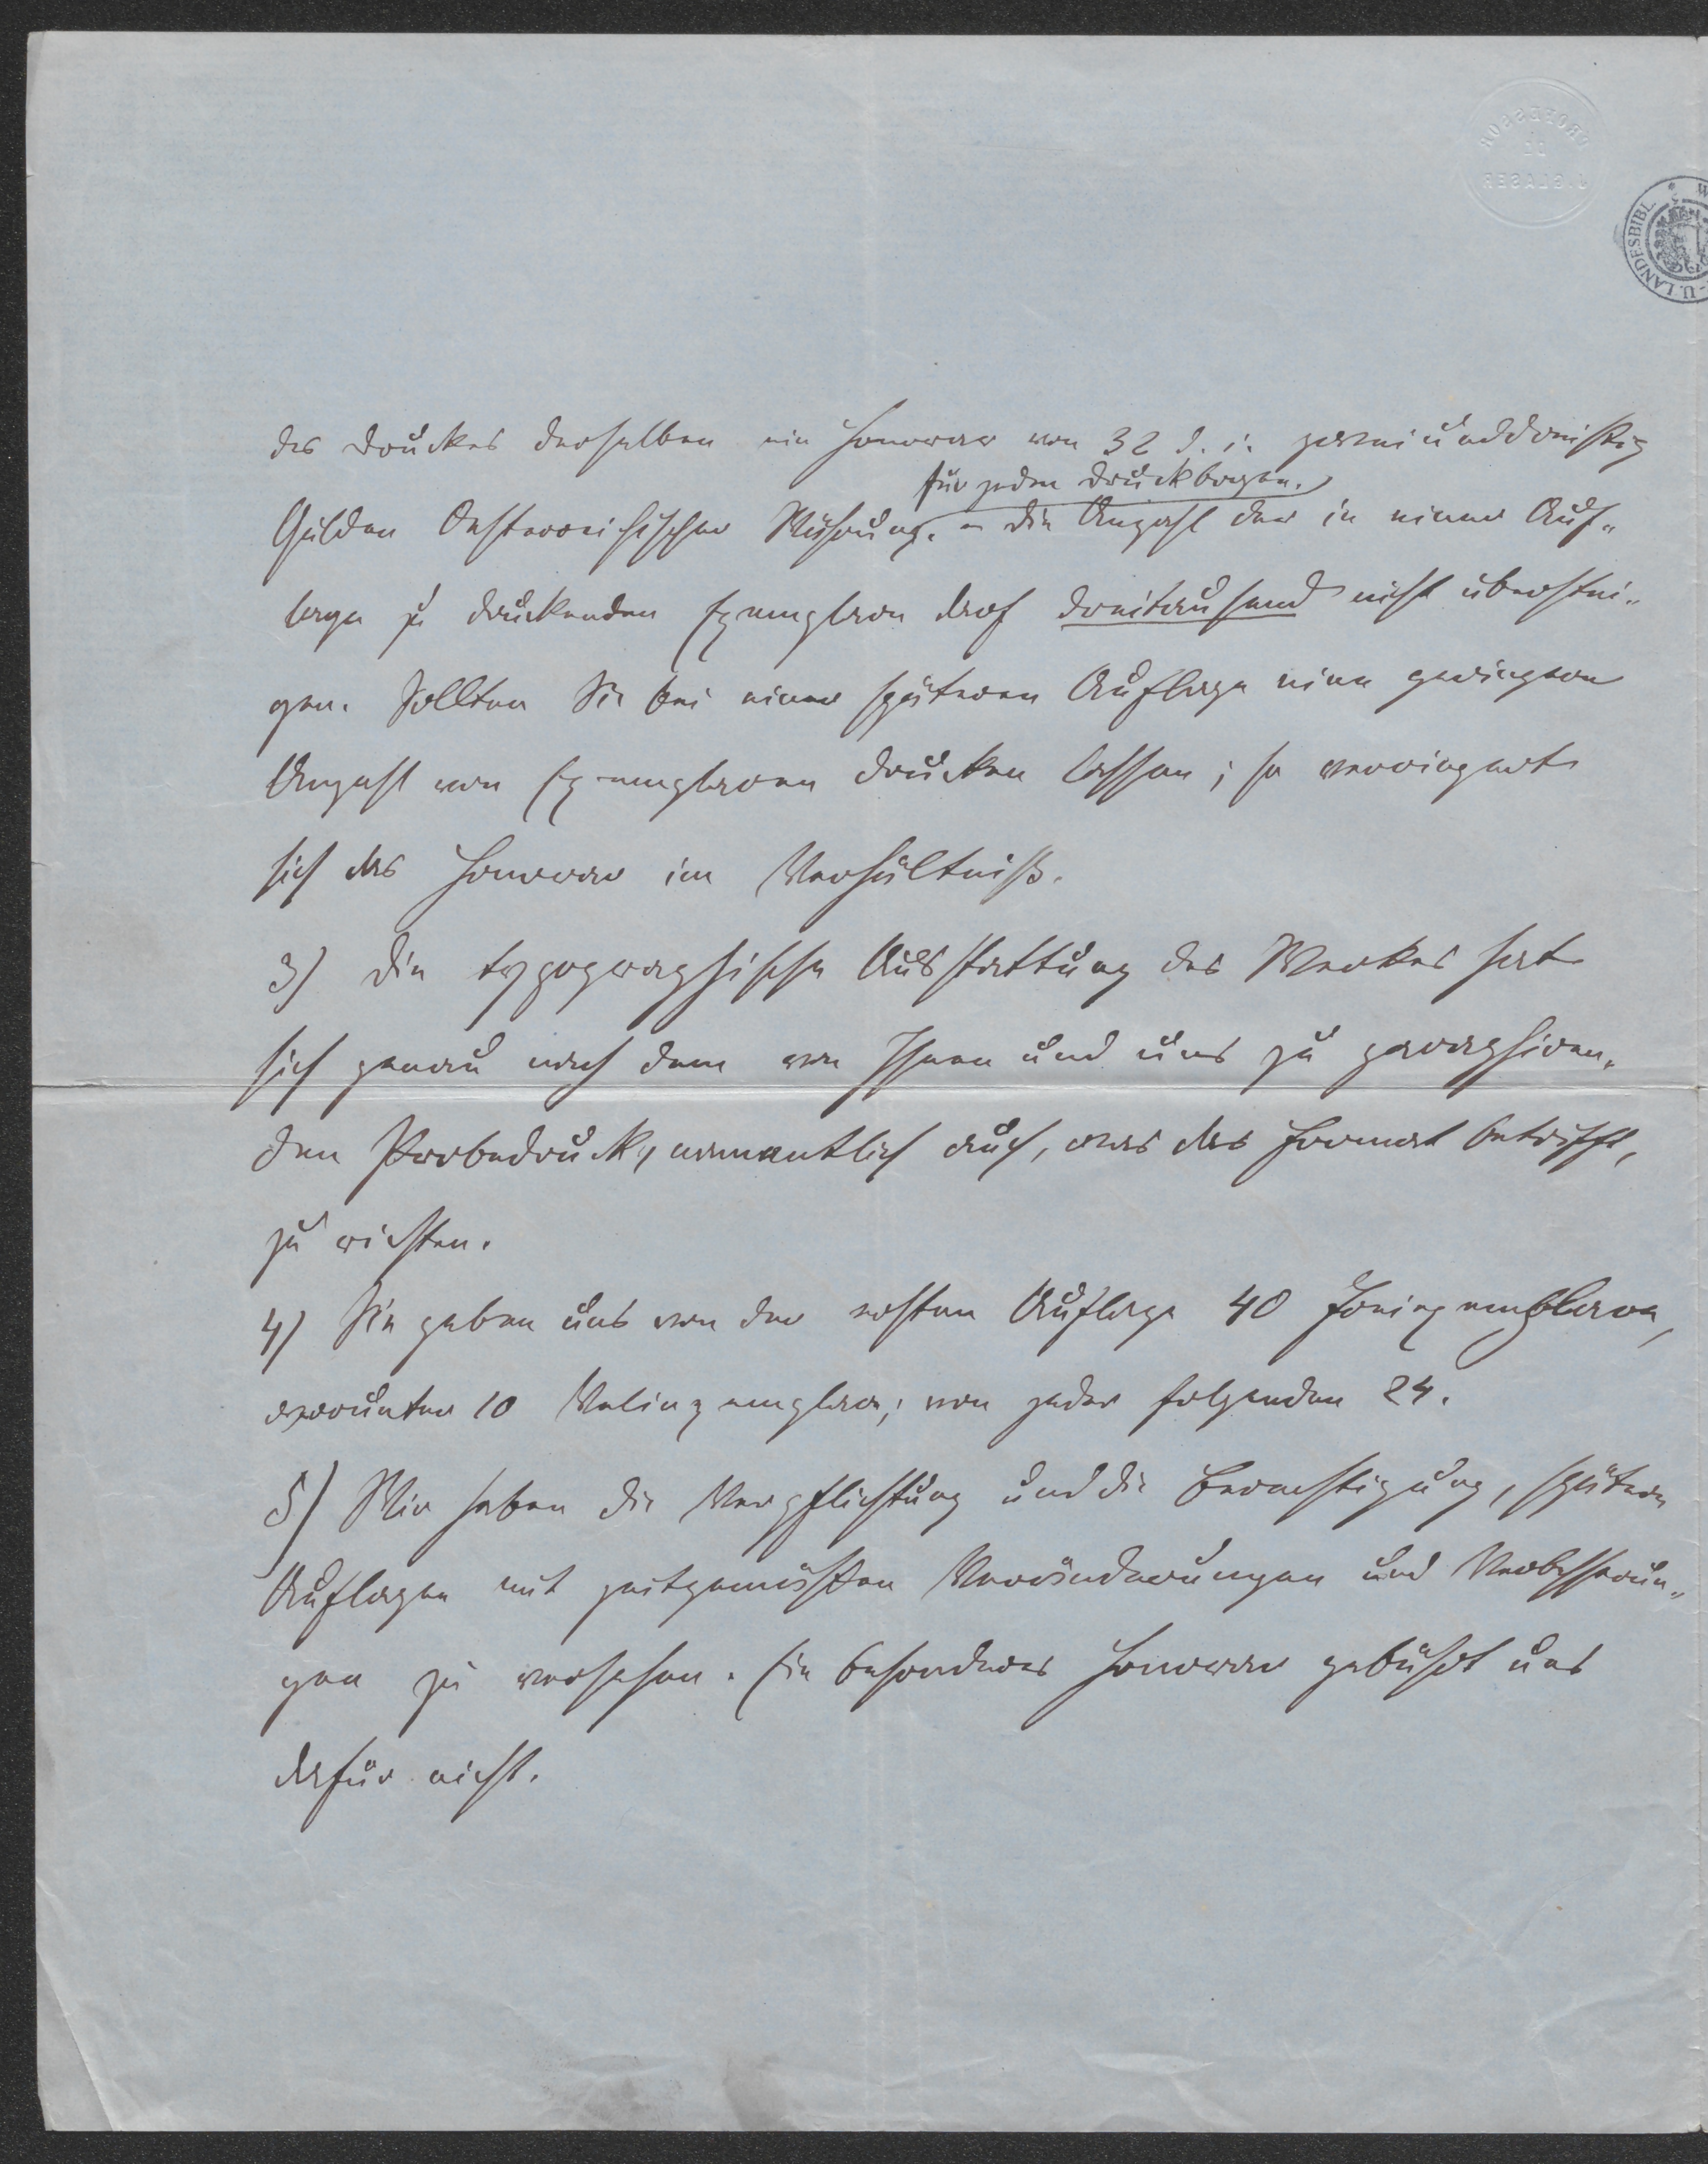 PROFESSOR
DR
J. GLASER
LANDESBIBL.
des Druckes derselben ein Honorar von 32 d. i. zweiunddreißig
für jeden Druckbogen.
Gulden Oesterreichischer Währung. – Die Anzahl der in einer Auf-
lage zu druckenden Exemplare darf dreitausend nicht überstei-
gen. Sollten Sie bei einer späteren Auflage eine geringere
Anzahl von Exemplaren drucken lassen; so verringert
sich das Honorar im Verhältniß.
3) Die typographische Ausstattung des Werkes hat
sich genau nach dem von Ihnen und uns zu paraphiren-
den Probedruck, namentlich auch, was das Format betrifft,
zu richten.
4) Sie geben uns von der ersten Auflage 40 Freiexemplare,
worunter 10 Velinexemplare; von jeder folgenden 24.
5) Wir haben die Verpflichtung und die Berechtigung, spätere
Auflagen mit zeitgemäßen Veränderungen und Verbesserun-
gen zu versehen. Ein besonderes Honorar gebührt uns
dafür nicht.